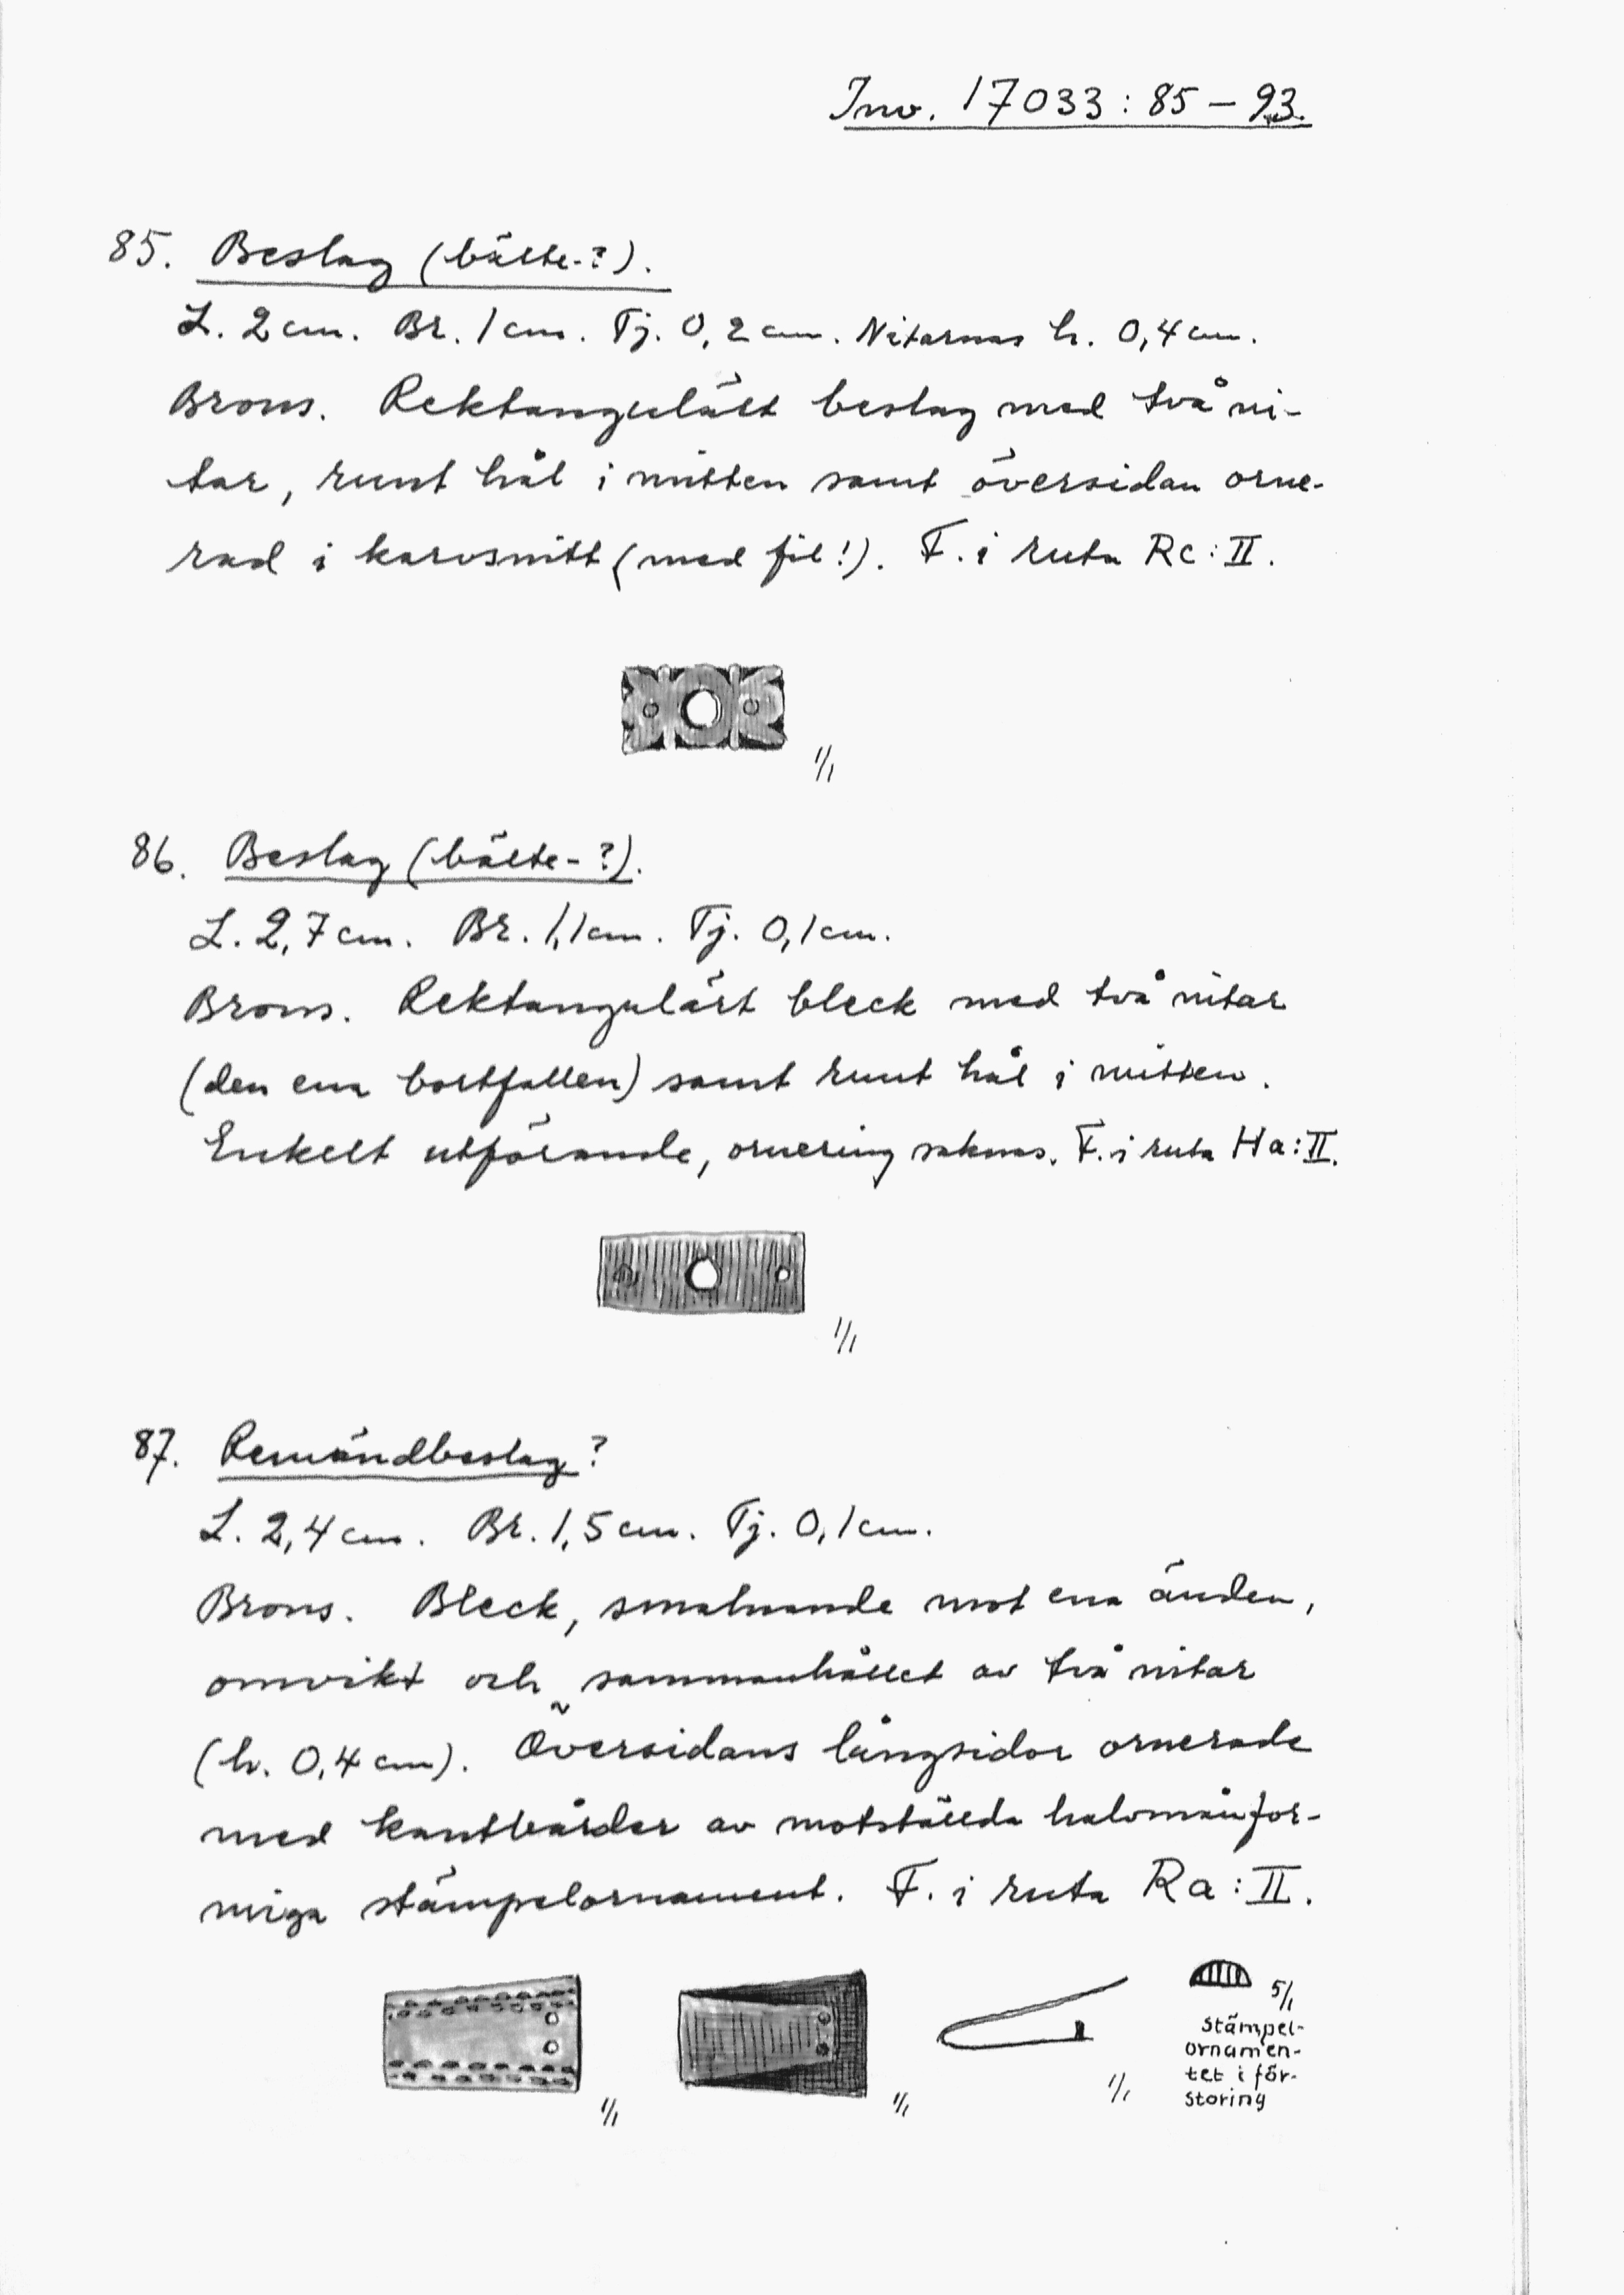 Inv. 17033:85–93.
85. Beslag (bälte-?).
L. 2 cm. Br. 1 cm. Tj. 0,2 cm. Nitarnas h. 0,4 cm.
Brons. Rektangulärt beslag med två ni-
tar, runt hål i mitten samt översidan orne-
rad i karvsnitt (med fil!). F. i ruta Rc:II.
1/1
86. Beslag (bälte-?).
L. 2,7 cm. Br. 1,1 cm. Tj. 0,1 cm.
Brons. Rektangulärt bleck med två nitar
(den ena bortfallen) samt runt hål i mitten.
Enkelt utförande, ornering saknas. F. i ruta Ha:II.
1/1
87. Remändbeslag?
L. 2,4 cm. Br. 1,5 cm. Tj. 0,1 cm.
Brons. Bleck, smalnande mot ena änden,
omvikt och sammanhållet av två nitar
(h. 0,4 cm). Översidans långsidor ornerade
med kantbårder av motställda halvmånfor-
miga stämpelornament. F. i ruta Ra:II.
5/1
stämpel-
ornamen-
tet i för-
storing
1/1
1/1
1/1